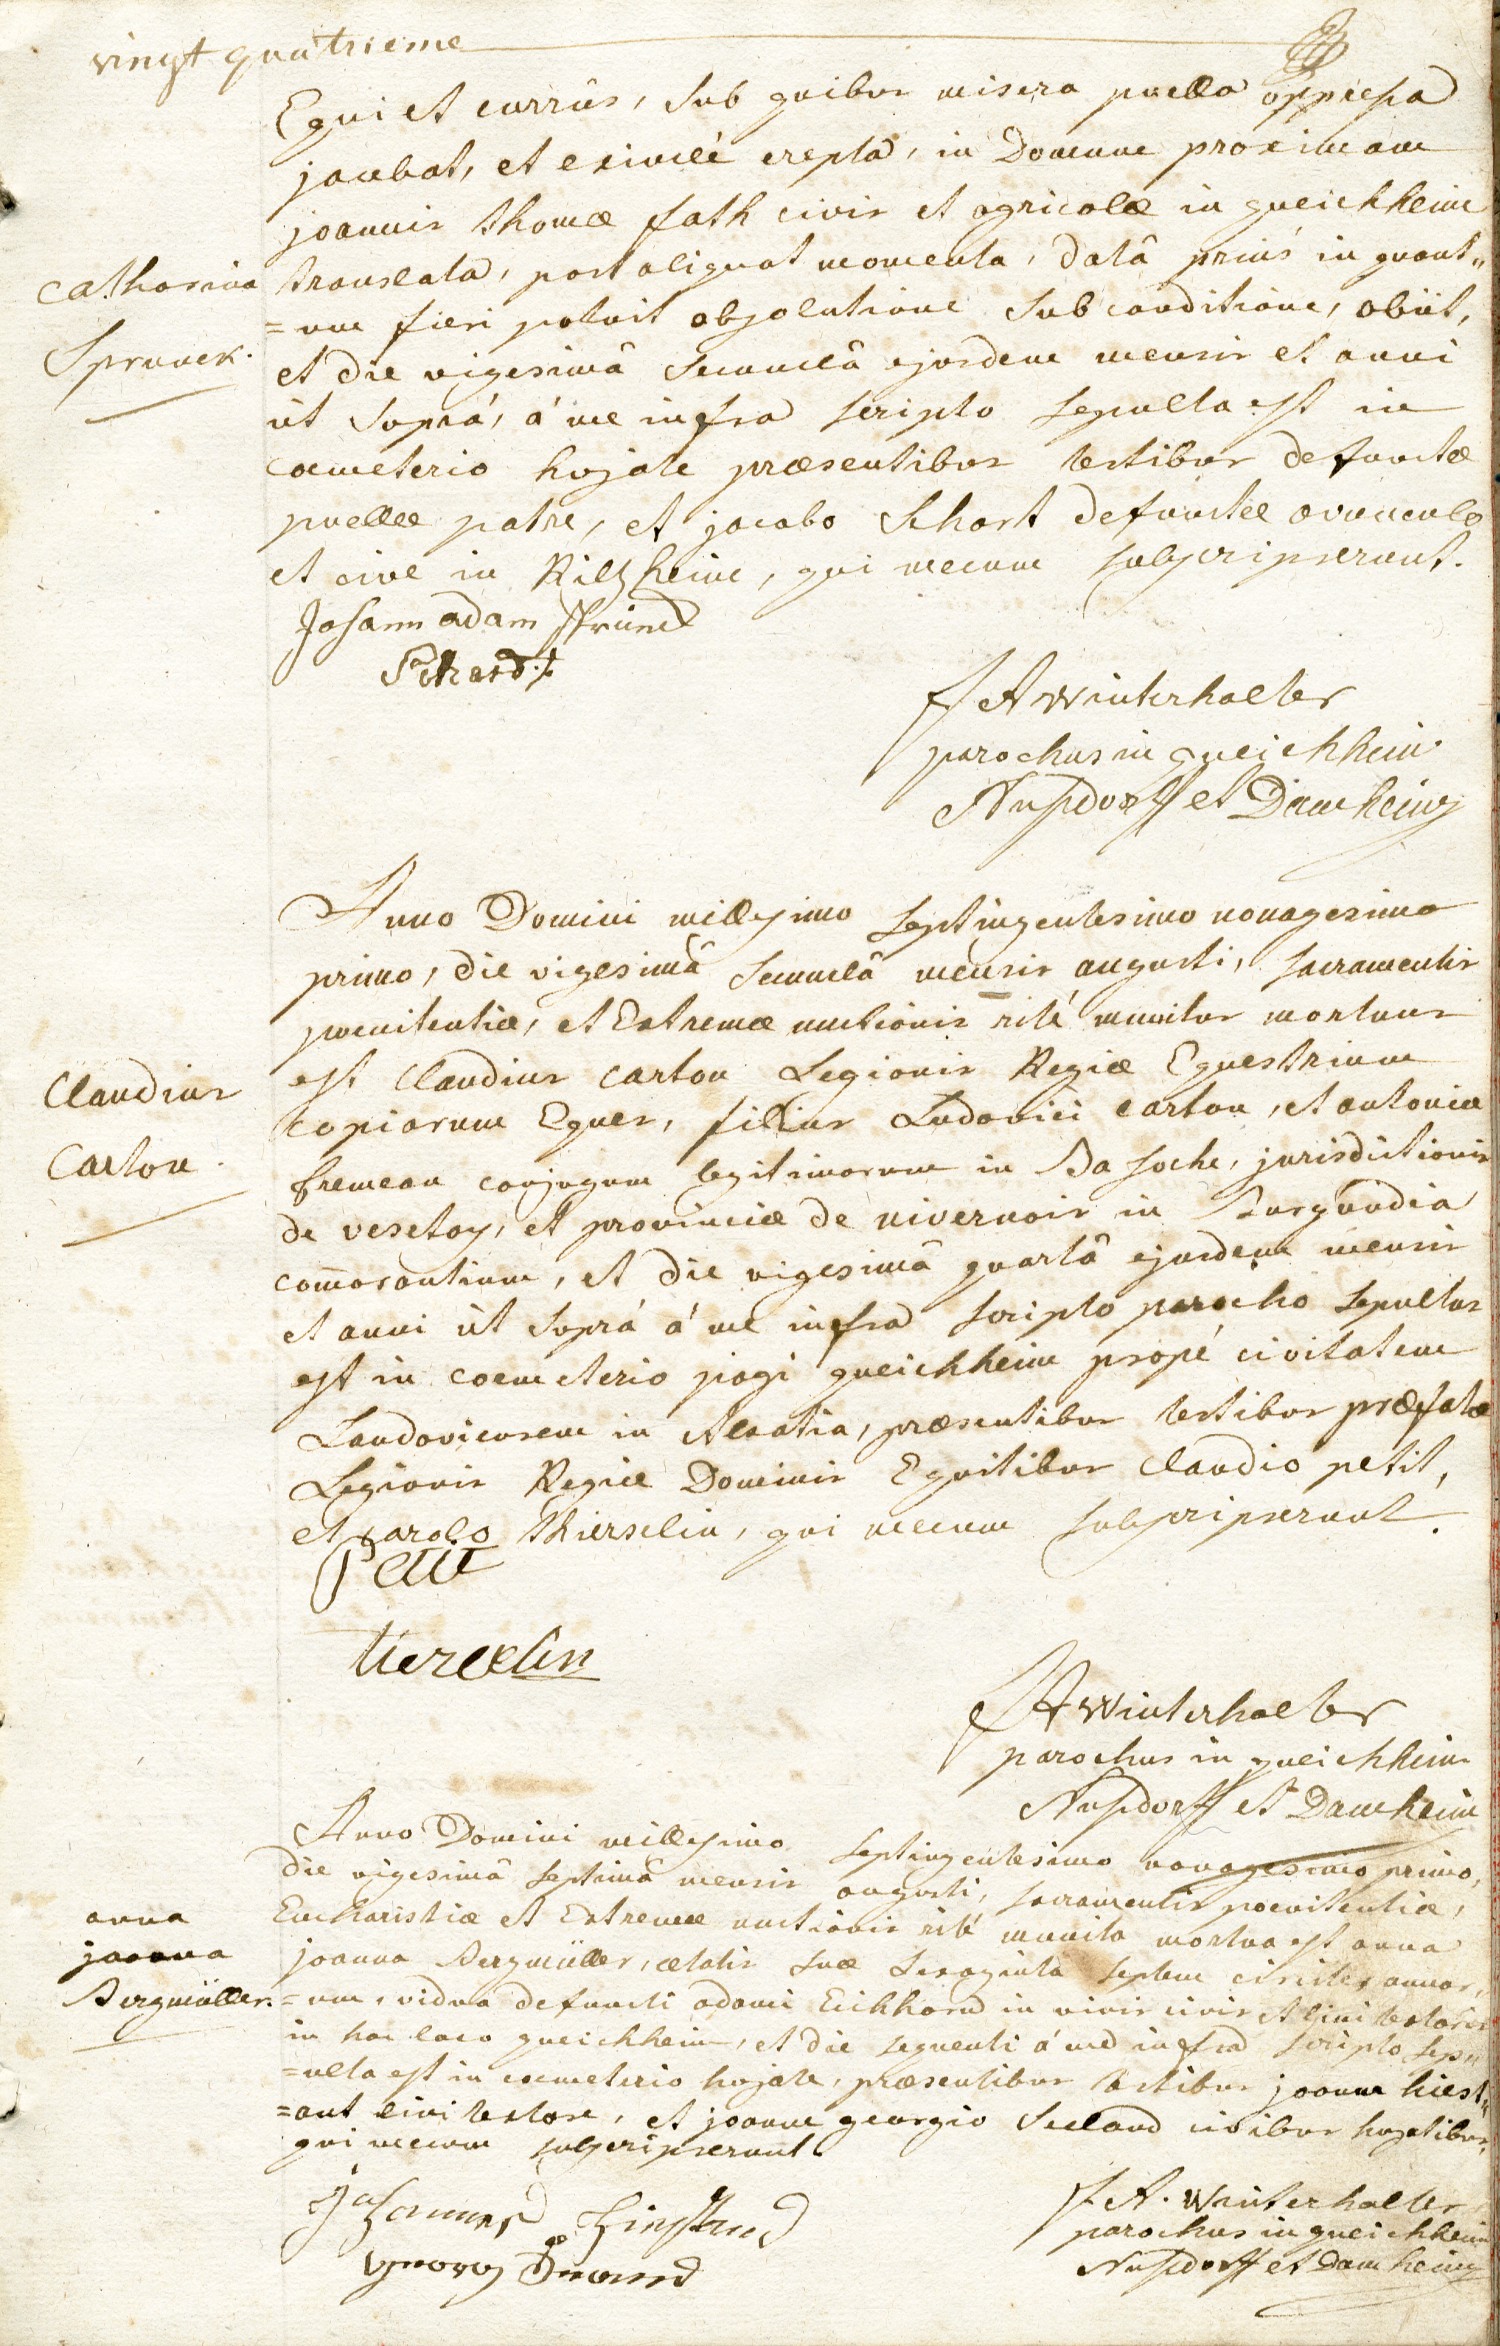 vingt quatrieme
Equi et currûs, sub quibus misera puella oppressa
jacebat, et exinde erepta, in Domum proximam
joannis thomæ fath civis et agricolæ in queichheim
Catharina
translata, post aliquot momenta, datâ priùs in quant„
=um fieri potuit absolutione sub conditione, obiit,
Sprunck.
et die vigesimâ secundâ ejusdem mensis et anni
ut suprà, à me infra scripto sepulta est in
coemeterio hujate præsentibus testibus defunctæ
puellæ patre, et jacobo Schart defunctæ avunculo
et cive in Rilzheim, qui mecum subscripserunt.
Johann adam
F A Winterhalter
parochus in queichheim
Nussdorff et Damheim
Anno Domini millesimo septingentesimo nonagesimo
primo, die vigesimâ secundâ mensis augusti, sacramentis
poenitentiæ, et Extremæ unctionis ritè munitus mortuus
Claudius
est Claudius Carton Legionis Regiæ Equestrium
copiarum Eques, filius Ludovici carton, et antoniæ
Carton.
fremeau conjugum legitimorum in Basoche, jurisdictionis
de vesetoy, et provinciæ de nivernois in Burgundia
com̄orantium, et die vigesimâ quartâ ejusdem mensis
et anni ut suprà à me infra scripto parocho sepultus
est in coemeterio pagi queichheim propè civitatem
Landoviensem in Alsatia, præsentibus testibus præfatæ
Legionis Regiæ Dominis Equitibus Claudio petit,
et carolo thierselin, qui mecum subscripserunt.
Petit
tiercelin
F A Winterhalter
parochus in queichheim
Nussdorff et Damheim
Anno Domini millesimo septingentesimo nonagesimo primo,
die vigesimâ septimâ mensis augusti, sacramentis poenitentiæ,
Eucharistiæ et Extremæ unctionis ritè munita mortua est anna
anna
joanna
joanna Bergmüller, ætatis suæ sexaginta septem circiter annor„
Bergmüller.
=um, vidua defuncti adami Eichhorn in vivis civis et lini textoris
in hoc loco queichheim, et die sequenti à me infra scripto sepu„
=elta est in coemeterio hujate, præsentibus testibus joanne hiest„
=ant lini textore, et joanne georgio Seeland civibus hujatibus,
qui mecum subscripserunt
F A. Winterhalter
parochus in queichheim
Nussdorff et Damheim